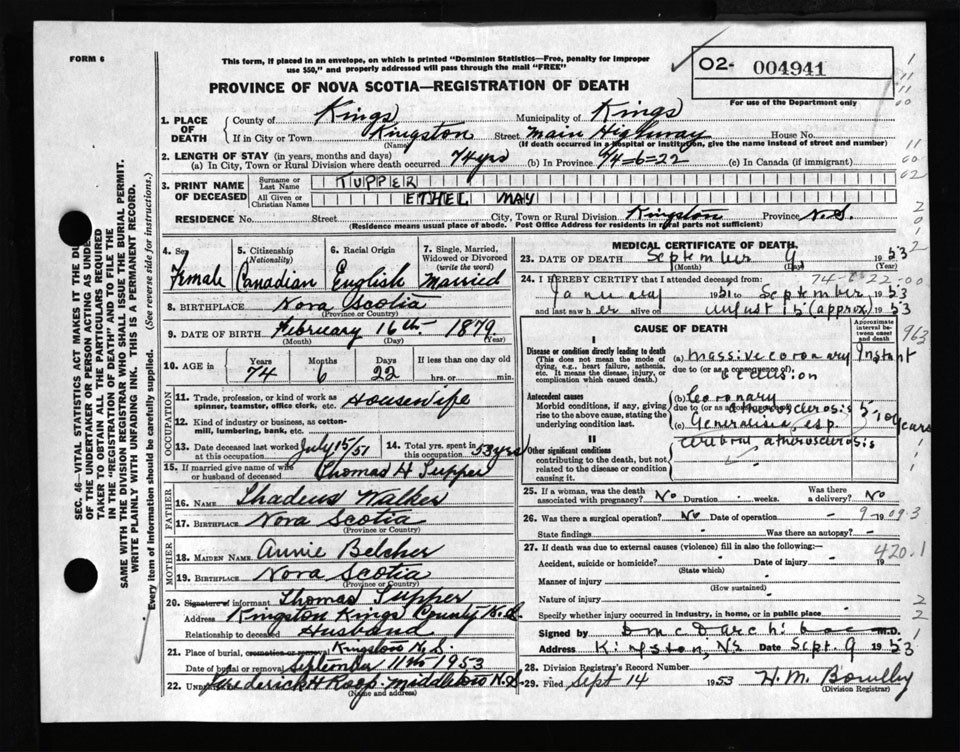 FORM 6
This form, if placed in an envelope, on which is printed "Dominion Statistics—Free, penalty for improper
use $50," and properly addressed will pass through the mail "FREE"
PROVINCE OF NOVA SCOTIA—REGISTRATION OF DEATH
02- 004941
For use of the Department only
1. PLACE OF DEATH
County of Kings Municipality of Kings
If in City or Town Kingston Street Main Highway House No.
(Name) (If death occurred in a hospital or institution, give the name instead of street and number)
2. LENGTH OF STAY (in years, months and days)
(a) In City, Town or Rural Division where death occurred 74 yrs (b) In Province 74-6-22 (c) In Canada (if immigrant)
3. PRINT NAME OF DECEASED
Surname or Last Name TUPPER
All Given or Christian Names ETHEL MAY
RESIDENCE No. Street City, Town or Rural Division Kingston Province N.S.
(Residence means usual place of abode. Post Office Address for residents in rural parts not sufficient)
4. Sex Female
5. Citizenship (Nationality) Canadian
6. Racial Origin English
7. Single, Married, Widowed or Divorced (write the word) Married
8. BIRTHPLACE Nova Scotia
(Province or Country)
9. DATE OF BIRTH February 16th 1879
(Month) (Day) (Year)
10. AGE in Years 74 Months 6 Days 22 If less than one day old hrs. or min.
OCCUPATION
11. Trade, profession, or kind of work as spinner, teamster, office clerk, etc. Housewife
12. Kind of industry or business, as cotton-mill, lumbering, bank, etc.
13. Date deceased last worked at this occupation July 15/51
14. Total yrs. spent in this occupation 53 yrs
15. If married give name of wife or husband of deceased Thomas H Tupper
FATHER
16. NAME Thadeus Walker
17. BIRTHPLACE Nova Scotia
(Province or Country)
MOTHER
18. MAIDEN NAME Annie Belcher
19. BIRTHPLACE Nova Scotia
(Province or Country)
20. Signature of informant Thomas Tupper
Address Kingston Kings County N.S.
Relationship to deceased Husband
21. Place of burial, cremation or removal Kingston N.S.
Date of burial or removal September 11th 1953
22. Frederick H Roop Middleton N.S.
(Name and address)
MEDICAL CERTIFICATE OF DEATH
23. DATE OF DEATH September 9, 1953
(Month) (Day) (Year)
24. I HEREBY CERTIFY that I attended deceased from 74-6-22
January 1951 to September 1953
and last saw her alive on August 15 (approx) 1953
CAUSE OF DEATH
Approximate interval between onset and death
I
Disease or condition directly leading to death
(This does not mean the mode of dying, e.g., heart failure, asthenia, etc. It means the disease, injury, or complication which caused death.)
(a) Massive coronary Instant
due to (or as a consequence of) occlusion
Antecedent causes
Morbid conditions, if any, giving rise to the above cause, stating the underlying condition last.
(b) Coronary
due to (or as a consequence of) atherosclerosis
(c) Generalised, esp. 5-10 years
cerebral atherosclerosis
II
Other significant conditions
contributing to the death, but not related to the disease or condition causing it.
963
25. If a woman, was the death associated with pregnancy? No Duration - weeks. Was there a delivery? No
26. Was there a surgical operation? No Date of operation - 19
State findings - Was there an autopsy? -
27. If death was due to external causes (violence) fill in also the following:—
420.1
Accident, suicide or homicide? Date of injury - 19
(State which)
Manner of injury
(How sustained)
Nature of injury
Specify whether injury occurred in industry, in home, or in public place
Signed by M.D.
Address Kingston, NS Date Sept. 9 1953
28. Division Registrar's Record Number
29. Filed Sept 14 1953 H. M.
(Division Registrar)
SEC. 46—VITAL STATISTICS ACT MAKES IT THE
OF THE UNDERTAKER OR PERSON ACTING AS
TAKER TO OBTAIN ALL THE PARTICULARS REQUIRED
IN THE "REGISTRATION OF DEATH" AND TO FILE THE
SAME WITH THE DIVISION REGISTRAR WHO SHALL ISSUE THE BURIAL PERMIT.
WRITE PLAINLY WITH UNFADING INK. THIS IS A PERMANENT RECORD.
Every item of information should be carefully supplied. (See reverse side for instructions.)